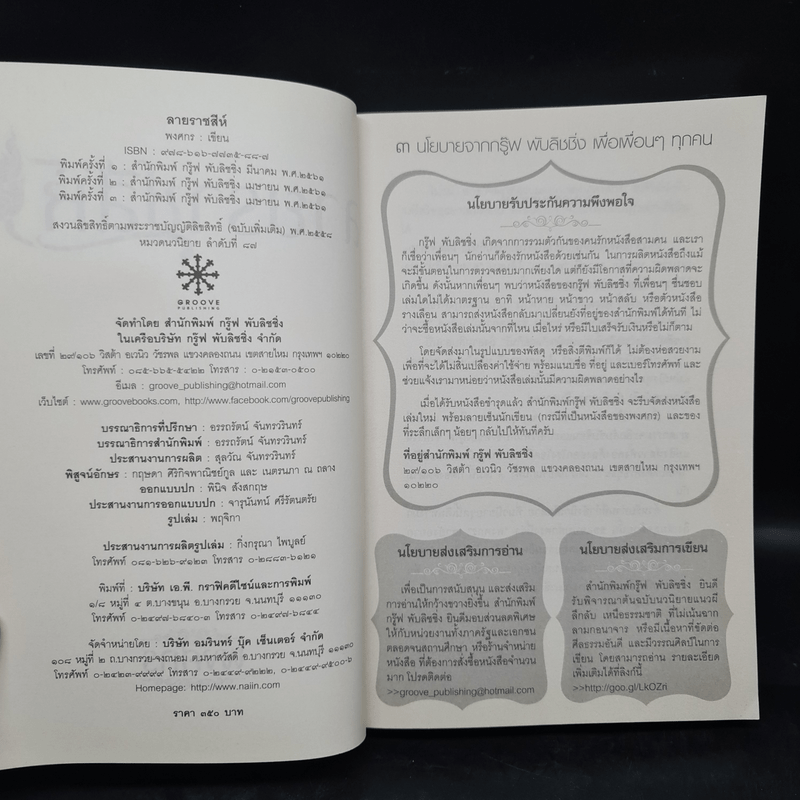 ลายราชสีห์
พงศกร : เขียน
ISBN : ๙๗๘-๖๑๖-๗๗๓๕-๘๘-๗
พิมพ์ครั้งที่ ๑ : สำนักพิมพ์ กรู๊ฟ พับลิชชิ่ง มีนาคม พ.ศ.๒๕๖๑
พิมพ์ครั้งที่ ๒ : สำนักพิมพ์ กรู๊ฟ พับลิชชิ่ง เมษายน พ.ศ.๒๕๖๑
พิมพ์ครั้งที่ ๓ : สำนักพิมพ์ กรู๊ฟ พับลิชชิ่ง เมษายน พ.ศ.๒๕๖๑
สงวนลิขสิทธิ์ตามพระราชบัญญัติลิขสิทธิ์ (ฉบับเพิ่มเติม) พ.ศ.๒๕๕๘
หมวดนวนิยาย ลำดับที่ ๘๗
GROOVE
PUBLISHING
จัดทำโดย สำนักพิมพ์ กรู๊ฟ พับลิชชิ่ง
ในเครือบริษัท กรู๊ฟ พับลิชชิ่ง จำกัด
เลขที่ ๒๙/๑๐๖ วิสต้า อเวนิว วัชรพล แขวงคลองถนน เขตสายไหม กรุงเทพฯ ๑๐๒๒๐
โทรศัพท์ : ๐๘๕-๖๖๕-๕๔๒๒ โทรสาร : ๐-๒๑๕๓-๐๕๐๐
อีเมล : groove_publishing@hotmail.com
เว็บไซต์ : www.groovebooks.com, http://www.facebook.com/groovepublishing
บรรณาธิการที่ปรึกษา : อรรถรัตน์ จันทรวรินทร์
บรรณาธิการสำนักพิมพ์ : อรรถรัตน์ จันทรวรินทร์
ประสานงานการผลิต : สุลวัณ จันทรวรินทร์
พิสูจน์อักษร : กฤษดา ศิริกิจพาณิชย์กูล และ เนตรนภา ณ ถลาง
ออกแบบปก : พินิจ สังสกฤษ
ประสานงานการออกแบบปก : จารุนันทน์ ศรีรัตนตรัย
รูปเล่ม : พฤจิกา
ประสานงานการผลิตรูปเล่ม : กิ่งกรุณา ไพบูลย์
โทรศัพท์ ๐๘๑-๖๒๖-๙๑๒๓ โทรสาร : ๐-๒๘๘๓-๖๑๒๑
พิมพ์ที่ : บริษัท เอ.พี. กราฟิคดีไซน์และการพิมพ์
๑/๘ หมู่ที่ ๔ ต.บางขนุน อ.บางกรวย จ.นนทบุรี ๑๑๑๓๐
โทรศัพท์ ๐-๒๔๙๗-๖๘๔๐-๓ โทรสาร ๐-๒๔๙๗-๖๘๔๔
จัดจำหน่ายโดย : บริษัท อมรินทร์ บุ๊ค เซ็นเตอร์ จำกัด
๑๐๘ หมู่ที่ ๒ ถ.บางกรวย-จงถนอม ต.มหาสวัสดิ์ อ.บางกรวย จ.นนทบุรี ๑๑๑๓๐
โทรศัพท์ ๐-๒๔๒๓-๙๙๙๙ โทรสาร ๐-๒๔๔๙-๙๒๒๒, ๐-๒๔๔๙-๙๕๐๐-๖
Homepage: http://www.naiin.com
ราคา ๓๕๐ บาท
๓ นโยบายจากกรู๊ฟ พับลิชชิ่ง เพื่อเพื่อนๆ ทุกคน
นโยบายรับประกันความพึงพอใจ
กรู๊ฟ พับลิชชิ่ง เกิดจากการรวมตัวกันของคนรักหนังสือสามคน และเรา
ก็เชื่อว่าเพื่อนๆ นักอ่านก็ต้องรักหนังสือด้วยเช่นกัน ในการผลิตหนังสือถึงแม้
จะมีขั้นตอนในการตรวจสอบมากเพียงใด แต่ก็ยังมีโอกาสที่ความผิดพลาดจะ
เกิดขึ้น ดังนั้นหากเพื่อนๆ พบว่าหนังสือของกรู๊ฟ พับลิชชิ่ง ที่ๆ ชื่นชอบ
เล่มใดไม่ได้มาตรฐาน อาทิ หน้าหาย หน้าขาว หน้าสลับ หรือตัวหนังสือ
รางเลือน สามารถส่งหนังสือกลับมาเปลี่ยนยังที่อยู่ของสำนักพิมพ์ได้ทันที ไม่
ว่าจะซื้อหนังสือเล่มนั้นจากที่ไหน เมื่อไหร่ หรือมีใบเสร็จรับเงินหรือไม่ก็ตาม
โดยจัดส่งมาในรูปแบบของพัสดุ หรือสิ่งตีพิมพ์ก็ได้ ไม่ต้องห่อสวยงาม
เพื่อที่จะได้ไม่สิ้นเปลืองค่าใช้จ่าย พร้อมแนบชื่อ ที่อยู่ และเบอร์โทรศัพท์ และ
ช่วยแจ้งเรามาหน่อยว่าหนังสือเล่มนั้นมีความผิดพลาดอย่างไร
เมื่อได้รับหนังสือชำรุดแล้ว สำนักพิมพ์กรู๊ฟ พับลิชชิ่ง จะรีบจัดส่งหนังสือ
เล่มใหม่ พร้อมลายเซ็นนักเขียน (กรณีที่เป็นหนังสือของพงศกร) และของ
ที่ระลึกเล็กๆ น้อยๆ กลับไปให้ทันทีครับ
ที่อยู่สำนักพิมพ์ กรู๊ฟ พับลิชชิ่ง
๒๙/๑๐๖ วิสต้า อเวนิว วัชรพล แขวงคลองถนน เขตสายไหม กรุงเทพฯ
๑๐๒๒๐
นโยบายส่งเสริมการอ่าน
เพื่อเป็นการสนับสนุน และส่งเสริม
การอ่านให้กว้างขวางยิ่งขึ้น สำนักพิมพ์
กรู๊ฟ พับลิชชิ่ง ยินดีมอบส่วนลดพิเศษ
ให้กับหน่วยงานทั้งภาครัฐและเอกชน
ตลอดจนสถานศึกษา หรือร้านจำหน่าย
หนังสือ ที่ต้องการสั่งซื้อหนังสือจำนวน
มาก โปรดติดต่อ
>>groove_publishing@hotmail.com
นโยบายส่งเสริมการเขียน
สำนักพิมพ์กรู๊ฟ พับลิชชิ่ง ยินดี
รับพิจารณาต้นฉบับนวนิยายแนวผี
ลึกลับ เหนือธรรมชาติ ที่ไม่เน้นฉาก
ลามกอนาจาร หรือมีเนื้อหาที่ขัดต่อ
ศีลธรรมอันดี และมีวรรณศิลป์ในการ
เขียน โดยสามารถอ่าน รายละเอียด
เพิ่มเติมได้ที่ลิงก์นี้
>>http://goo.gl/LkOZri